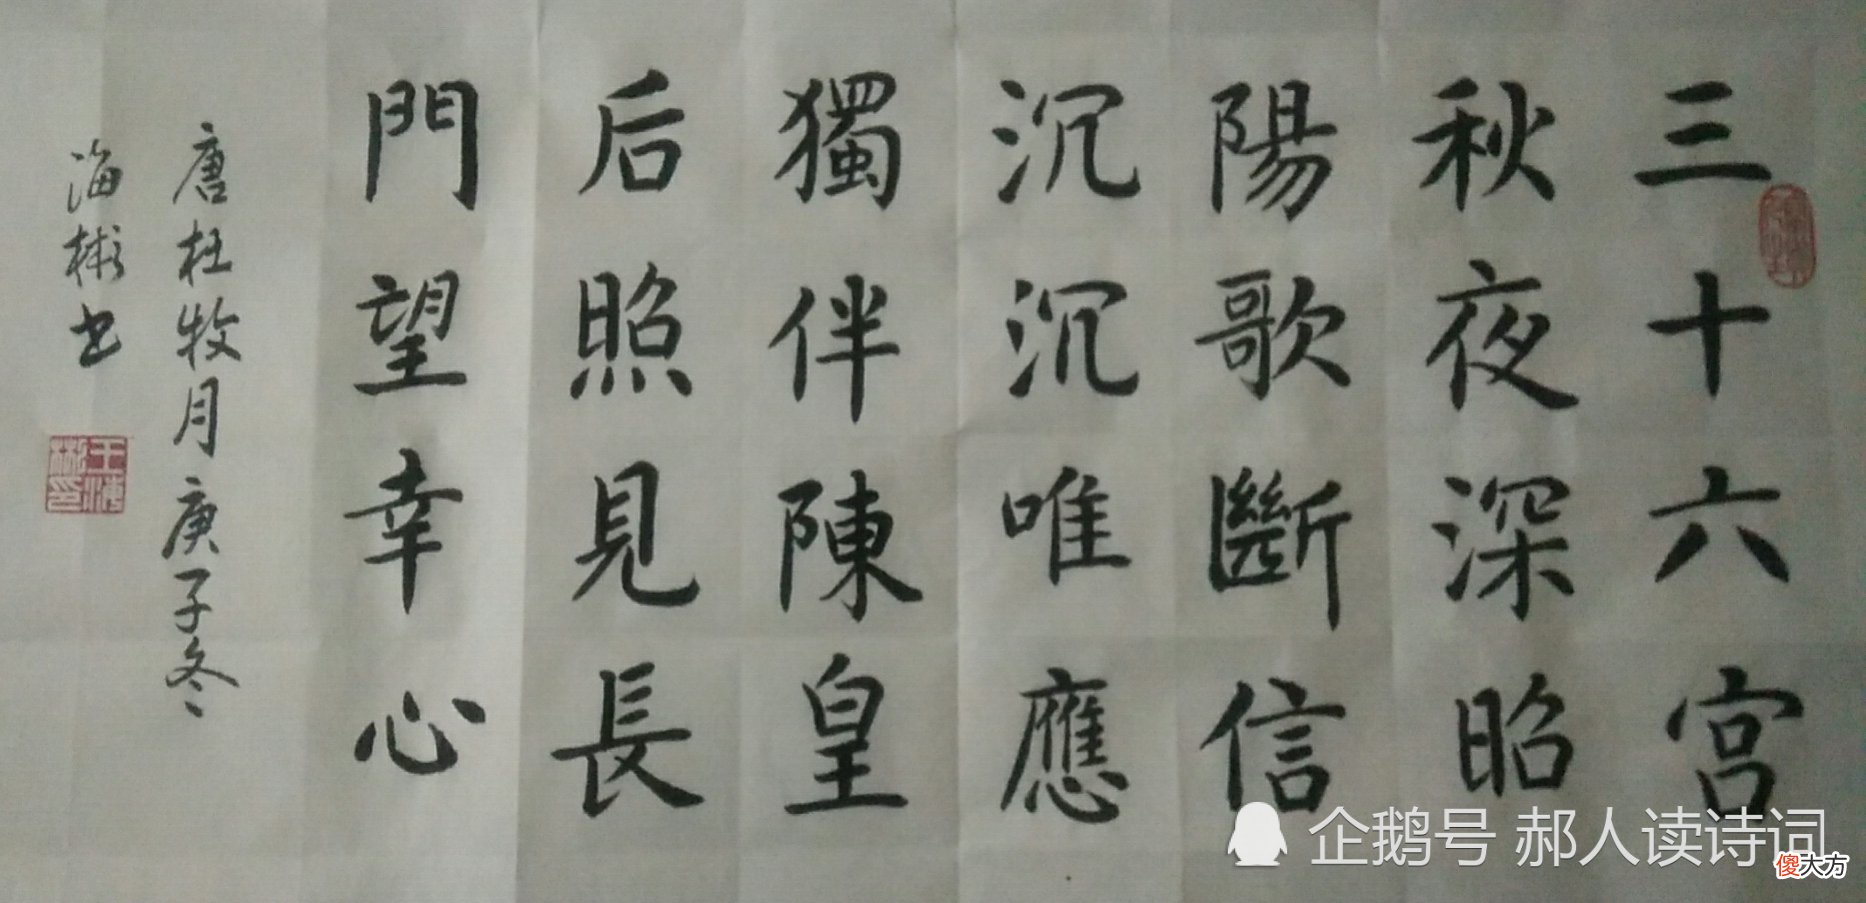 三十六宫
秋夜深昭
陽歌斷信
沉沉唯應
獨伴陳皇
后照見長
門望幸心
唐杜牧月庚子冬
海彬书
王海彬印
企鹅号 郝人读诗词
傻大方